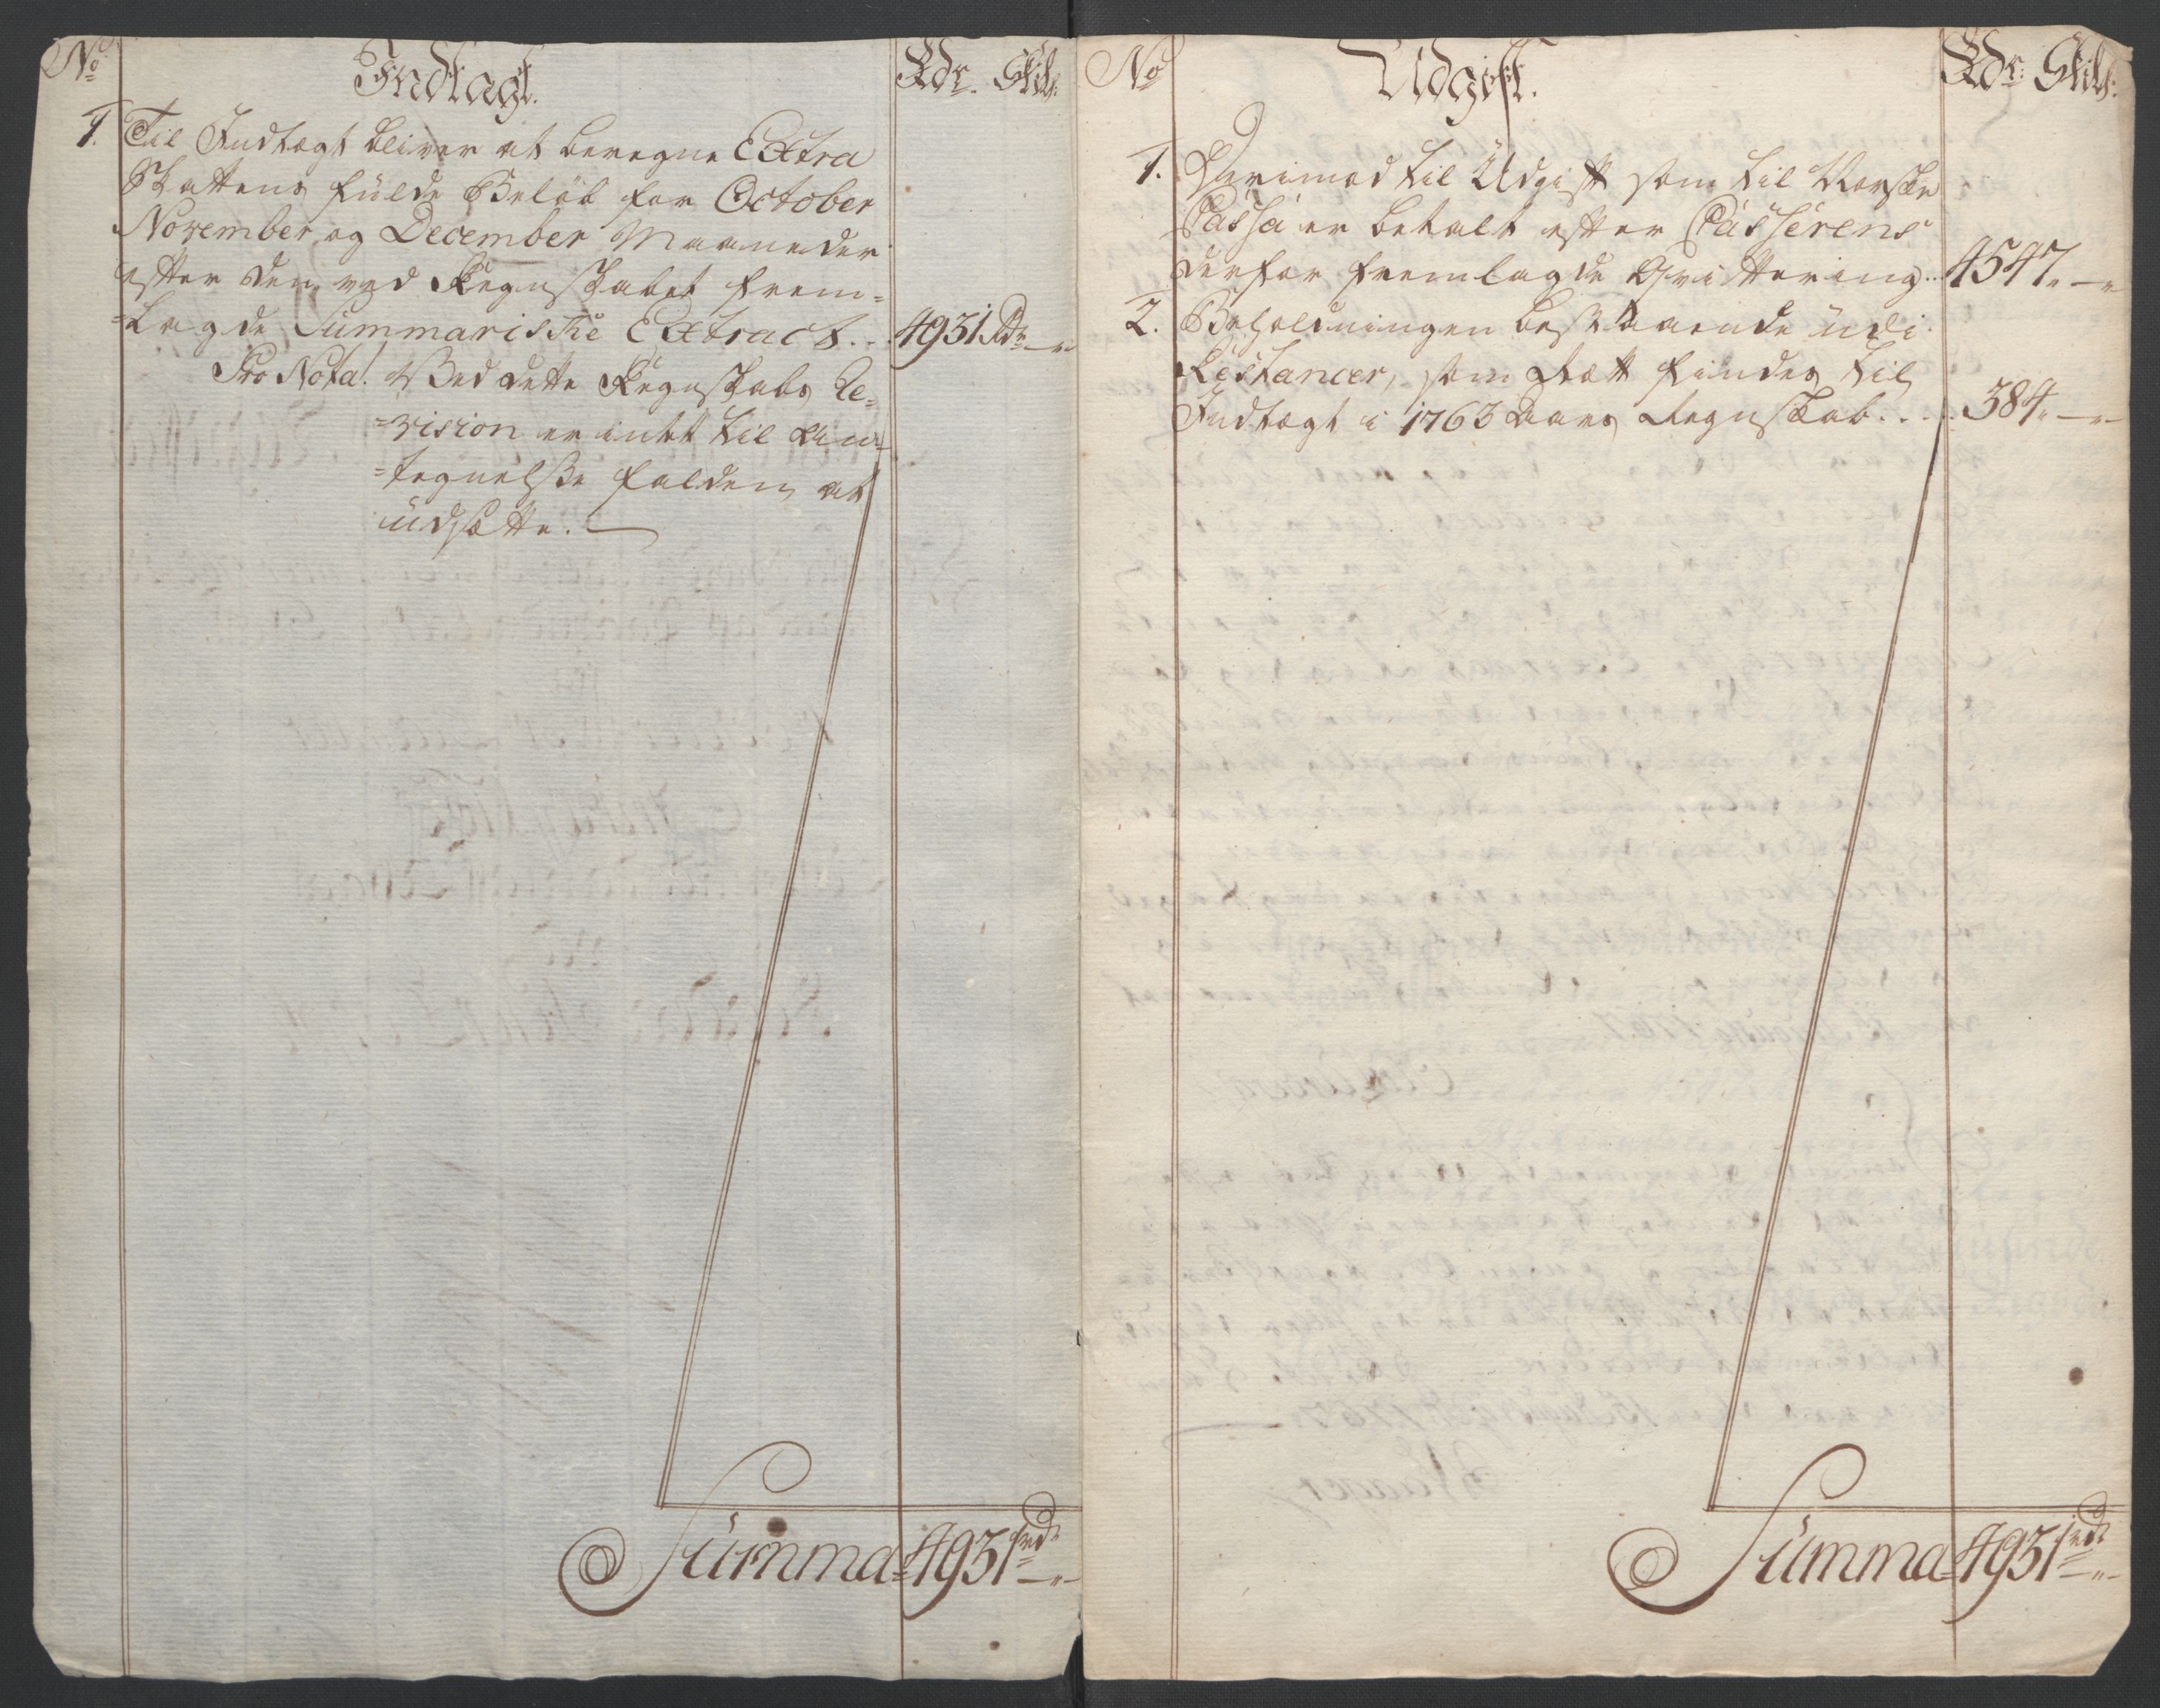 No Indtægt. Rdr. Skil:
1. Til Indtægt bliver at beregne Extra
Skattens fulde Beløb for October
November og December Maaneder
efter den ved Regnskabet frem=
=lagde Summariske Extract... 4931 Rdr —"—
Pro Nota. Ved dette Regnskabs Re=
=vision er intet til An=
=tegnelsße falden at
udsætte.
Summa 4931 rdr —"—
No Udgift. Rdr: Skil:
1. Derimod til Udgift som til Norske
Cassa er betalt efter Casserens
derfor fremlagde Qvittering.. 4547„—„
2. Beholdningen bestaaende udi
Restancer, som Rætt findes til
Indtægt i 1763 Aars Regnskab..... 384„—„—
Summa 4931 rdr —"—